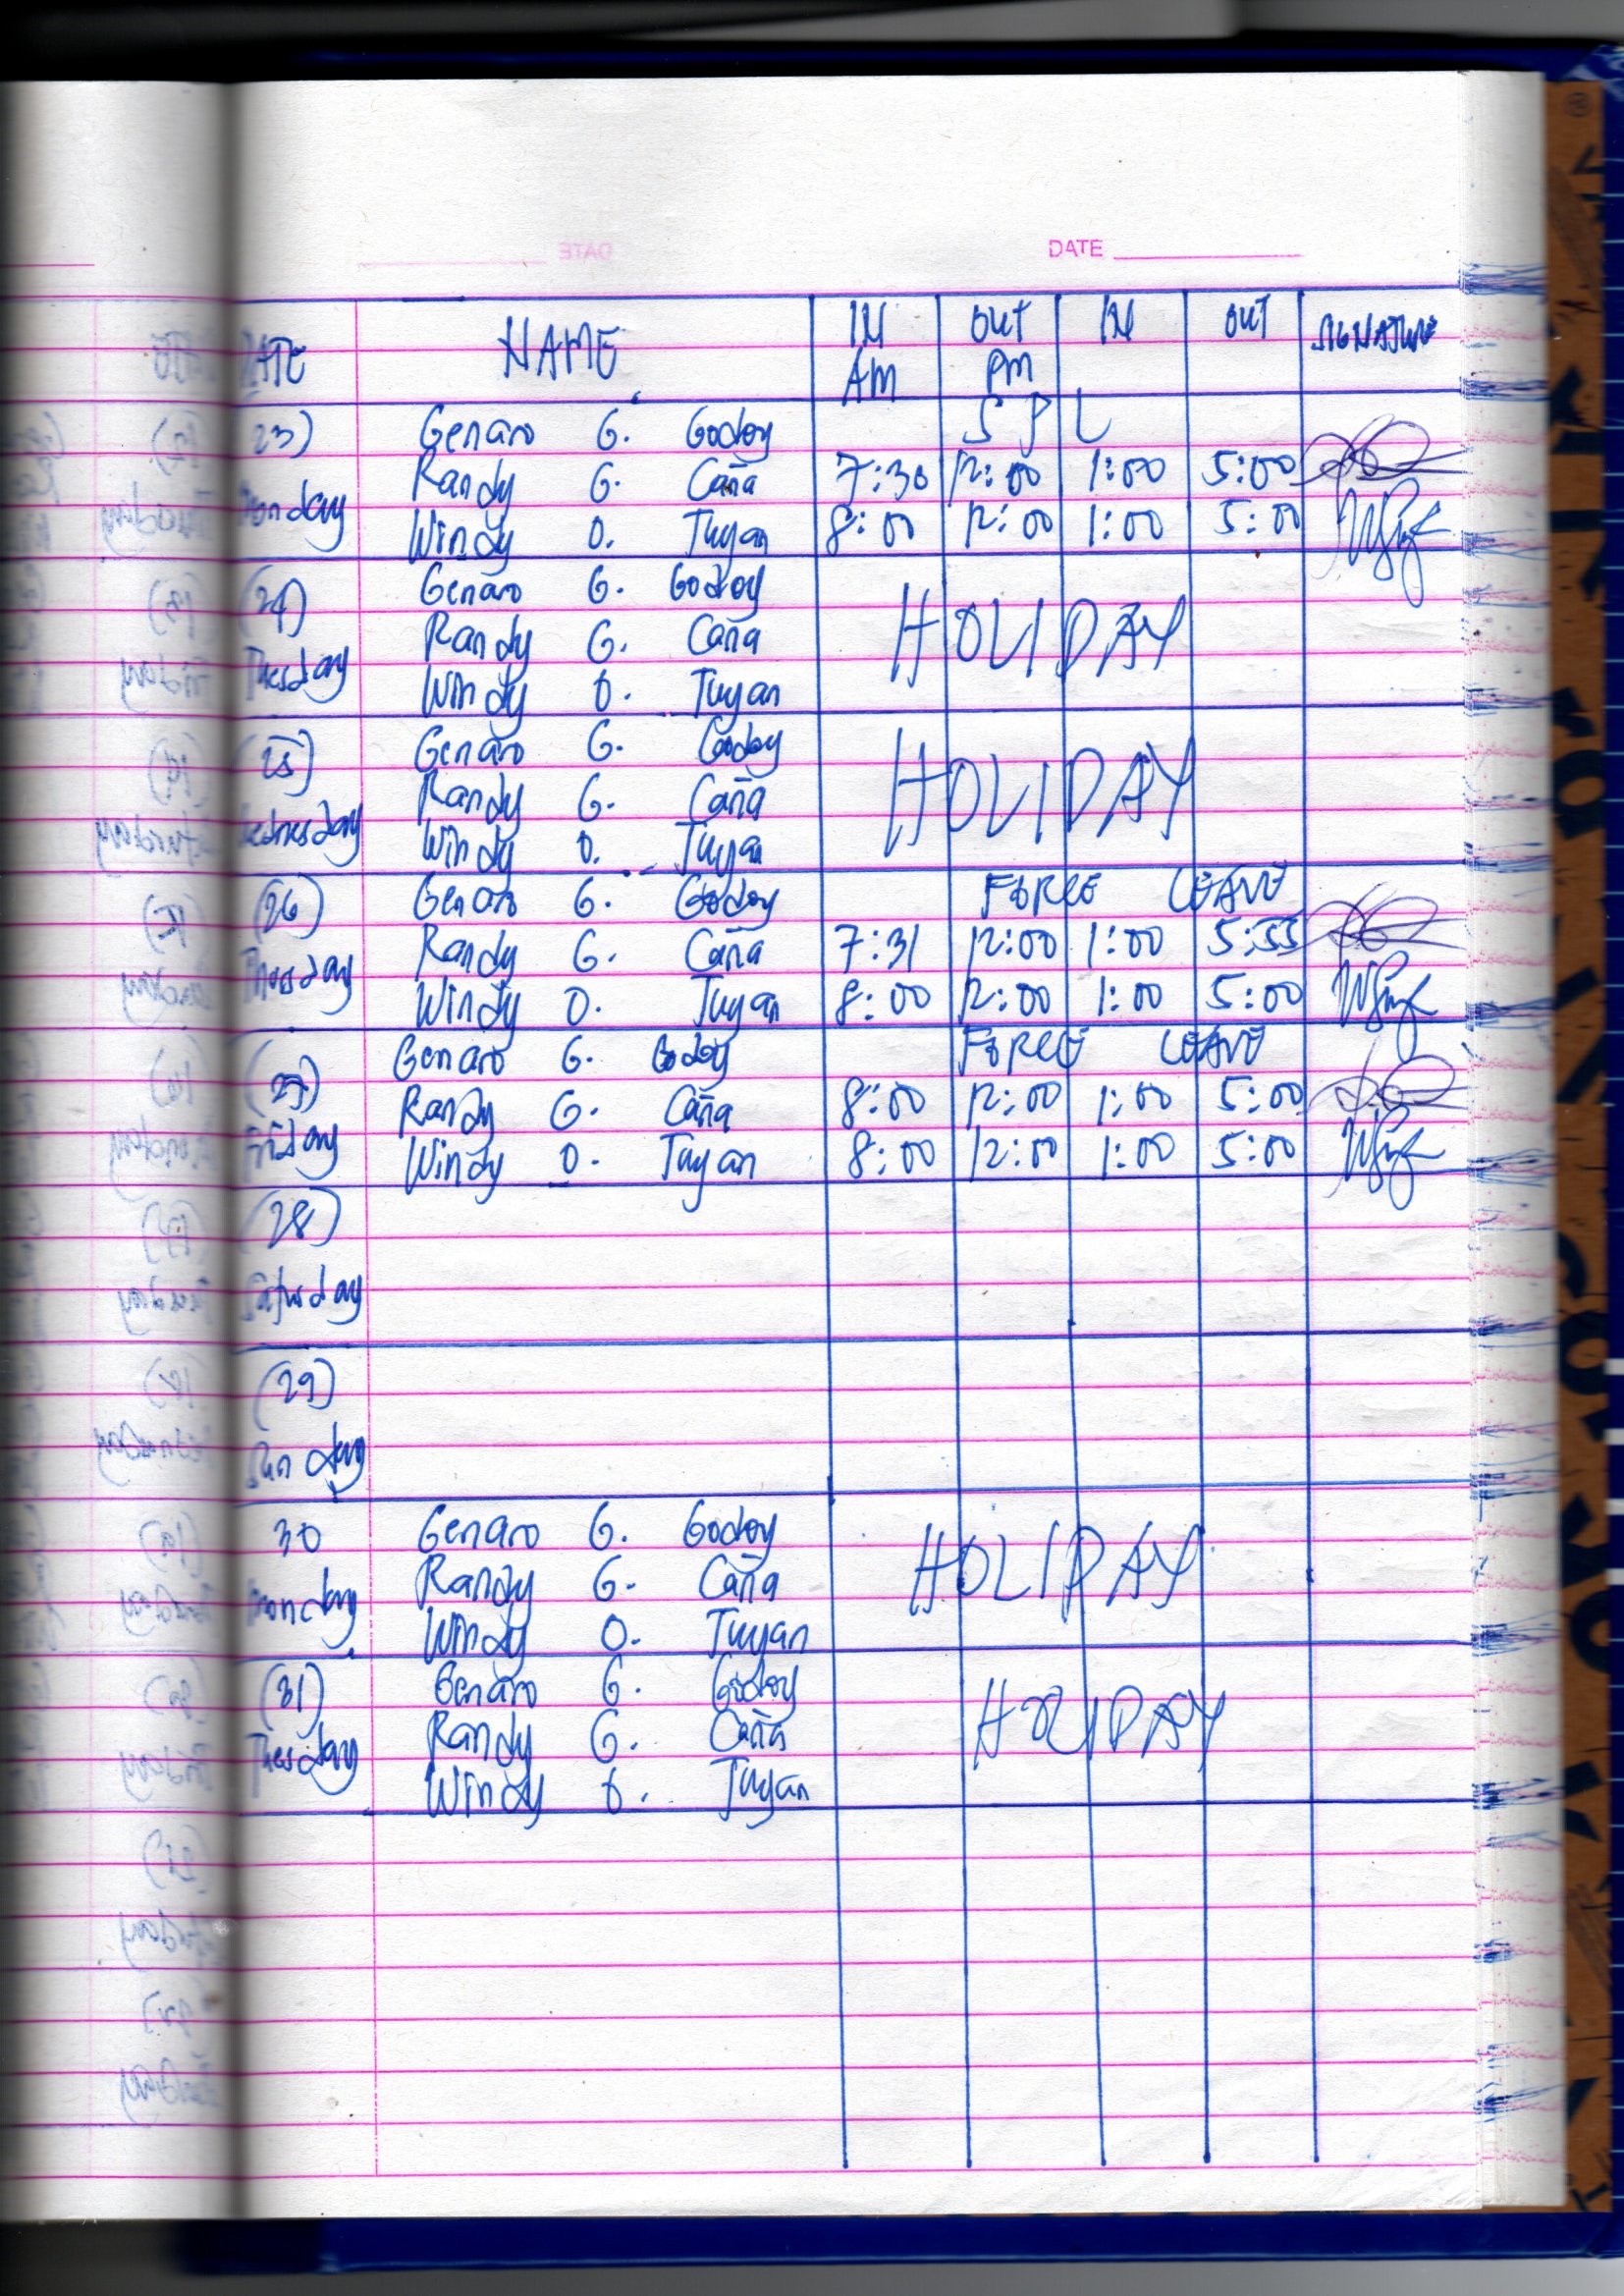 DATE
DATE NAME IN OUT IN OUT SIGNATURE
AM PM
(23) Genaro G. Godoy S P L
Randy G. Caña 7:30 12:00 1:00 5:00
Monday Windy O. Tuyan 8:00 12:00 1:00 5:00
(24) Genaro G. Godoy
Randy G. Caña HOLIDAY
Tuesday Windy O. Tuyan
(25) Genaro G. Godoy
Randy G. Caña HOLIDAY
Wednesday Windy O. Tuyan
(26) Genaro G. Godoy FORCE LEAVE
Randy G. Caña 7:31 12:00 1:00 5:55
Thursday Windy O. Tuyan 8:00 12:00 1:00 5:00
Genaro G. Godoy FORCE LEAVE
(27) Randy G. Caña 8:00 12:00 1:00 5:00
Friday Windy O. Tuyan 8:00 12:00 1:00 5:00
(28)
Saturday
(29)
Sunday
30 Genaro G. Godoy
Randy G. Caña HOLIDAY
Monday Windy O. Tuyan
(31) Genaro G. Godoy
Randy G. Caña HOLIDAY
Tuesday Windy O. Tuyan